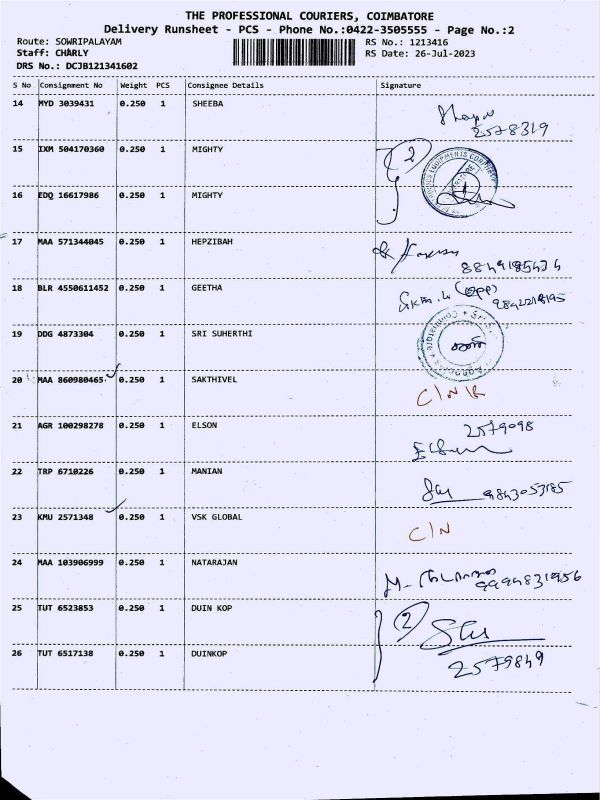 THE PROFESSIONAL COURIERS, COIMBATORE
Delivery Runsheet - PCS - Phone No.:0422-3505555 - Page No.:2
Route: SOWRIPALAYAM RS No.: 1213416
Staff: CHARLY RS Date: 26-Jul-2023
DRS No.: DCJB121341602
S No Consignment No Weight PCS Consignee Details Signature
14 MYD 3039431 0.250 1 SHEEBA
2578319
15 IXM 504170360 0.250 1 MIGHTY 2
16 EDQ 16617986 0.250 1 MIGHTY
17 MAA 571344045 0.250 1 HEPZIBAH
18 BLR 4550611452 0.250 1 GEETHA
19 DDG 4873304 0.250 1 SRI SUHERTHI
20 MAA 860980465 0.250 1 SAKTHIVEL
21 AGR 100298278 0.250 1 ELSON 2579098
22 TRP 6710226 0.250 1 MANIAN
9843053185
23 KMU 2571348 0.250 1 VSK GLOBAL C/N
24 MAA 103906999 0.250 1 NATARAJAN
9994831956
25 TUT 6523853 0.250 1 DUIN KOP 2
26 TUT 6517138 0.250 1 DUINKOP 2579849